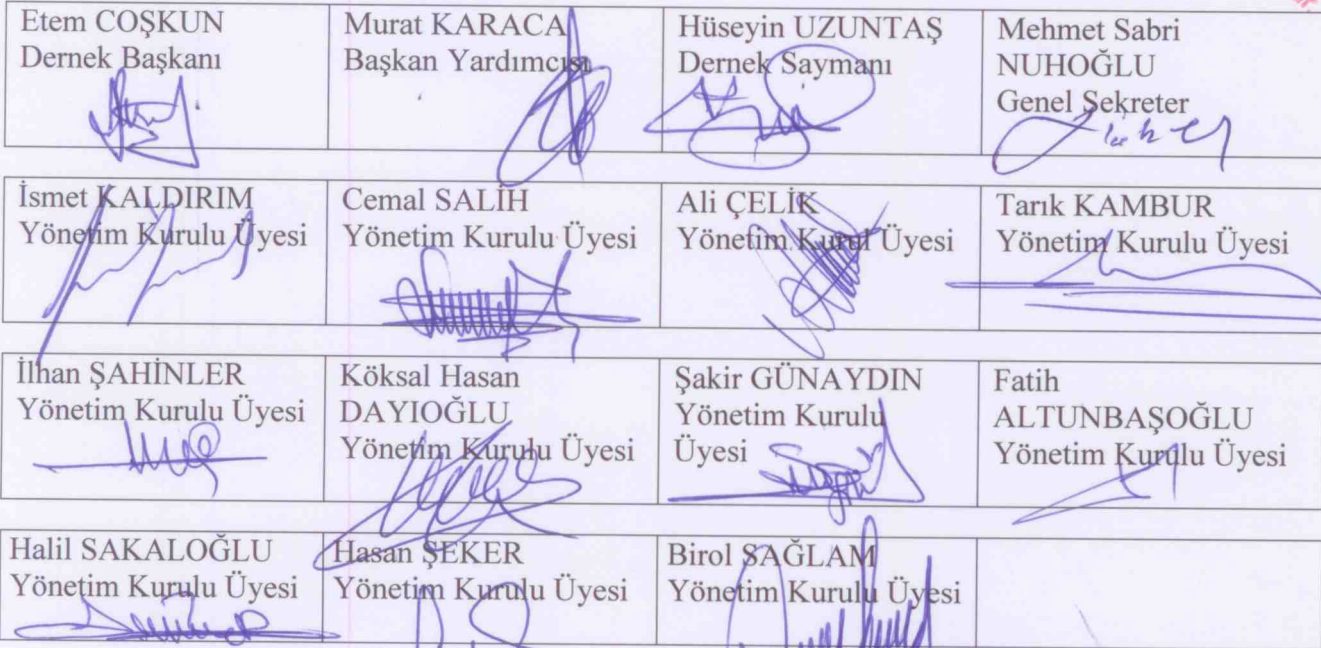 Etem COŞKUN
Dernek Başkanı
Murat KARACA
Başkan Yardımcısı
Hüseyin UZUNTAŞ
Dernek Saymanı
Mehmet Sabri
NUHOĞLU
Genel Sekreter
İsmet KALDIRIM
Yönetim Kurulu Üyesi
Cemal SALİH
Yönetim Kurulu Üyesi
Ali ÇELİK
Yönetim Kurul Üyesi
Tarık KAMBUR
Yönetim Kurulu Üyesi
İlhan ŞAHİNLER
Yönetim Kurulu Üyesi
Köksal Hasan
DAYIOĞLU
Yönetim Kurulu Üyesi
Şakir GÜNAYDIN
Yönetim Kurulu
Üyesi
Fatih
ALTUNBAŞOĞLU
Yönetim Kurulu Üyesi
Halil SAKALOĞLU
Yönetim Kurulu Üyesi
Hasan ŞEKER
Yönetim Kurulu Üyesi
Birol SAĞLAM
Yönetim Kurulu Üyesi